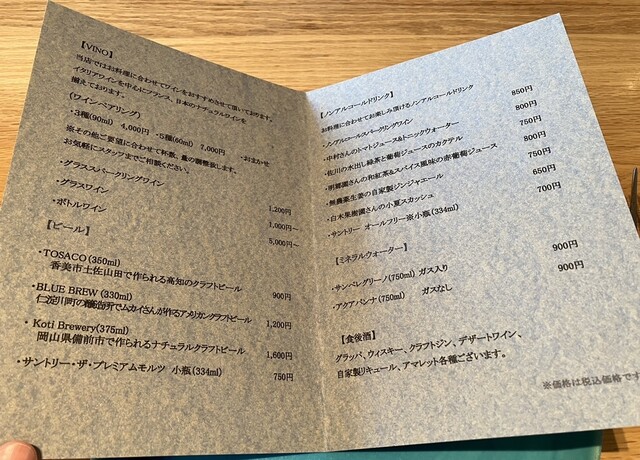 【VINO】
当店ではお料理に合わせてワインをおすすめさせて頂いております。
イタリアワインを中心にフランス、日本のナチュラルワインを
揃えております。
(ワインペアリング)
・3種(90ml) 4,000円 ・5種(60ml) 7,000円 ・おまかせ
※その他ご要望に合わせて杯数、量の調整致します。
お気軽にスタッフまでご相談ください。
・グラススパークリングワイン 1,200円
・グラスワイン 1,000円~
・ボトルワイン 5,000円~
【ビール】
・TOSACO(350ml)
香美市土佐山田で作られる高知のクラフトビール 900円
・BLUE BREW(330ml)
仁淀川町の醸造所でムカイさんが作るアメリカンクラフトビール 1,200円
・Koti Brewery(375ml)
岡山県備前市で作られるナチュラルクラフトビール 1,600円
・サントリー・ザ・プレミアムモルツ 小瓶(334ml) 750円
【ノンアルコールドリンク】
お料理に合わせてお楽しみ頂けるノンアルコールドリンク
・ノンアルコールスパークリングワイン 850円
・中村さんのトマトジュース&トニックウォーター 800円
・佐川の水出し緑茶と葡萄ジュースのカクテル 750円
・明郷園さんの和紅茶&スパイス風味の赤葡萄ジュース 800円
・無農薬生姜の自家製ジンジャエール 750円
・白木果樹園さんの小夏スカッシュ 650円
・サントリー オールフリー※小瓶(334ml) 700円
【ミネラルウォーター】
・サンペレグリーノ(750ml) ガス入り 900円
・アクアパンナ(750ml) ガスなし 900円
【食後酒】
グラッパ、ウィスキー、クラフトジン、デザートワイン、
自家製リキュール、アマレット各種ございます。
※価格は税込価格です